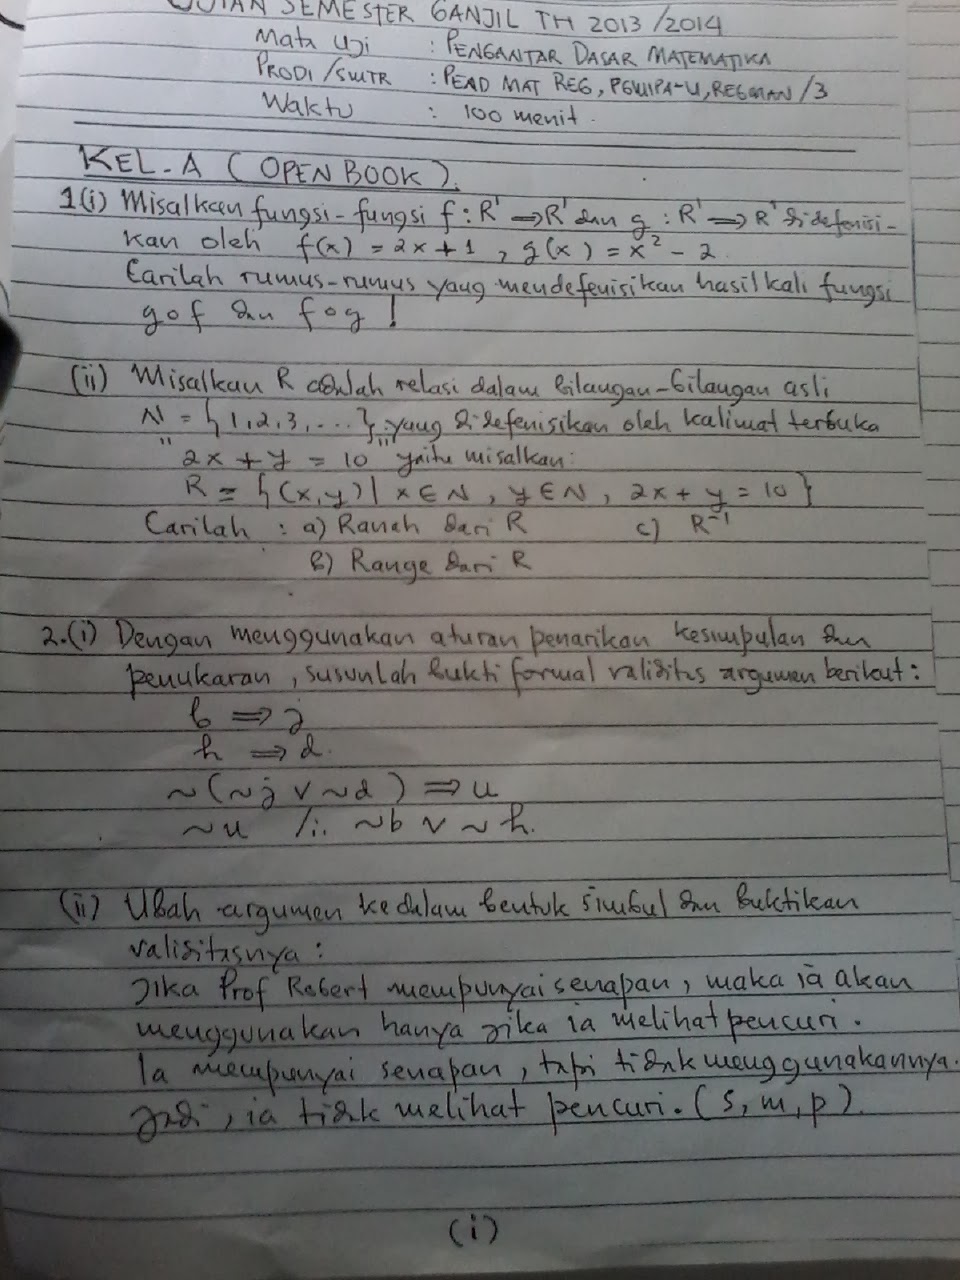 UJIAN SEMESTER GANJIL TH 2013/2014
Mata Uji : PENGANTAR DASAR MATEMATIKA
PRODI/SMTR : PEND MAT REG, PGMIPA-U, REGMAN/3
Waktu : 100 menit.
KEL-A (OPEN BOOK).
1(i) Misalkan fungsi-fungsi f : R' ⇒ R' dan g : R' ⇒ R' didefenisi-
kan oleh f(x) = 2x+1, g(x) = x² - 2.
Carilah rumus-rumus yang mendefenisikan hasil kali fungsi
gof dan fog!
(ii) Misalkan R adalah relasi dalam bilangan-bilangan asli
N = {1,2,3,....}, yang didefenisikan oleh kalimat terbuka
"2x + y = 10" yaitu misalkan:
R = {(x,y) | x ∈ N, y ∈ N, 2x + y = 10}
Carilah : a) Ranah dari R c) R⁻¹
b) Range dari R
2.(i) Dengan menggunakan aturan penarikan kesimpulan dan
penukaran, susunlah bukti formal validitas argumen berikut:
b ⇒ j
h ⇒ d.
~(~j v ~d) ⇒ u
~u /∴ ~b v ~h.
(ii) Ubah argumen kedalam bentuk simbul dan buktikan
validitasnya :
Jika Prof Robert mempunyai senapan, maka ia akan
menggunakan hanya jika ia melihat pencuri.
Ia mempunyai senapan, tapi tidak menggunakannya.
Jadi, ia tidak melihat pencuri. (s, m, p).
(i)